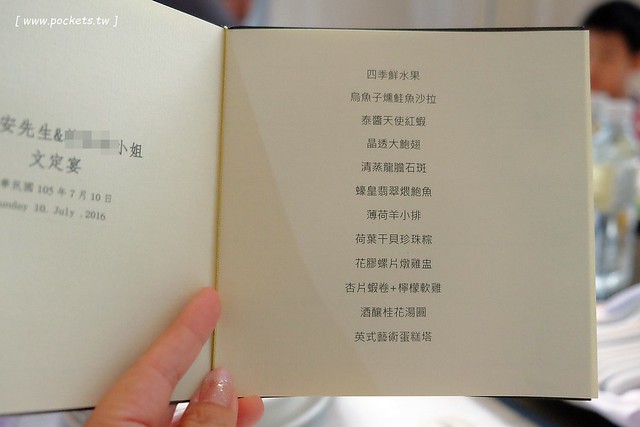 [ www.pockets.tw ]
安先生&
小姐
文定宴
華民國 105 年 7 月 10 日
unday 10. July . 2016
四季鮮水果
烏魚子燻鮭魚沙拉
泰醬天使紅蝦
晶透大鮑翅
清蒸龍膽石斑
蠔皇翡翠煨鮑魚
薄荷羊小排
荷葉干貝珍珠粽
花膠螺片燉雞盅
杏片蝦卷+檸檬軟雞
酒釀桂花湯圓
英式藝術蛋糕塔